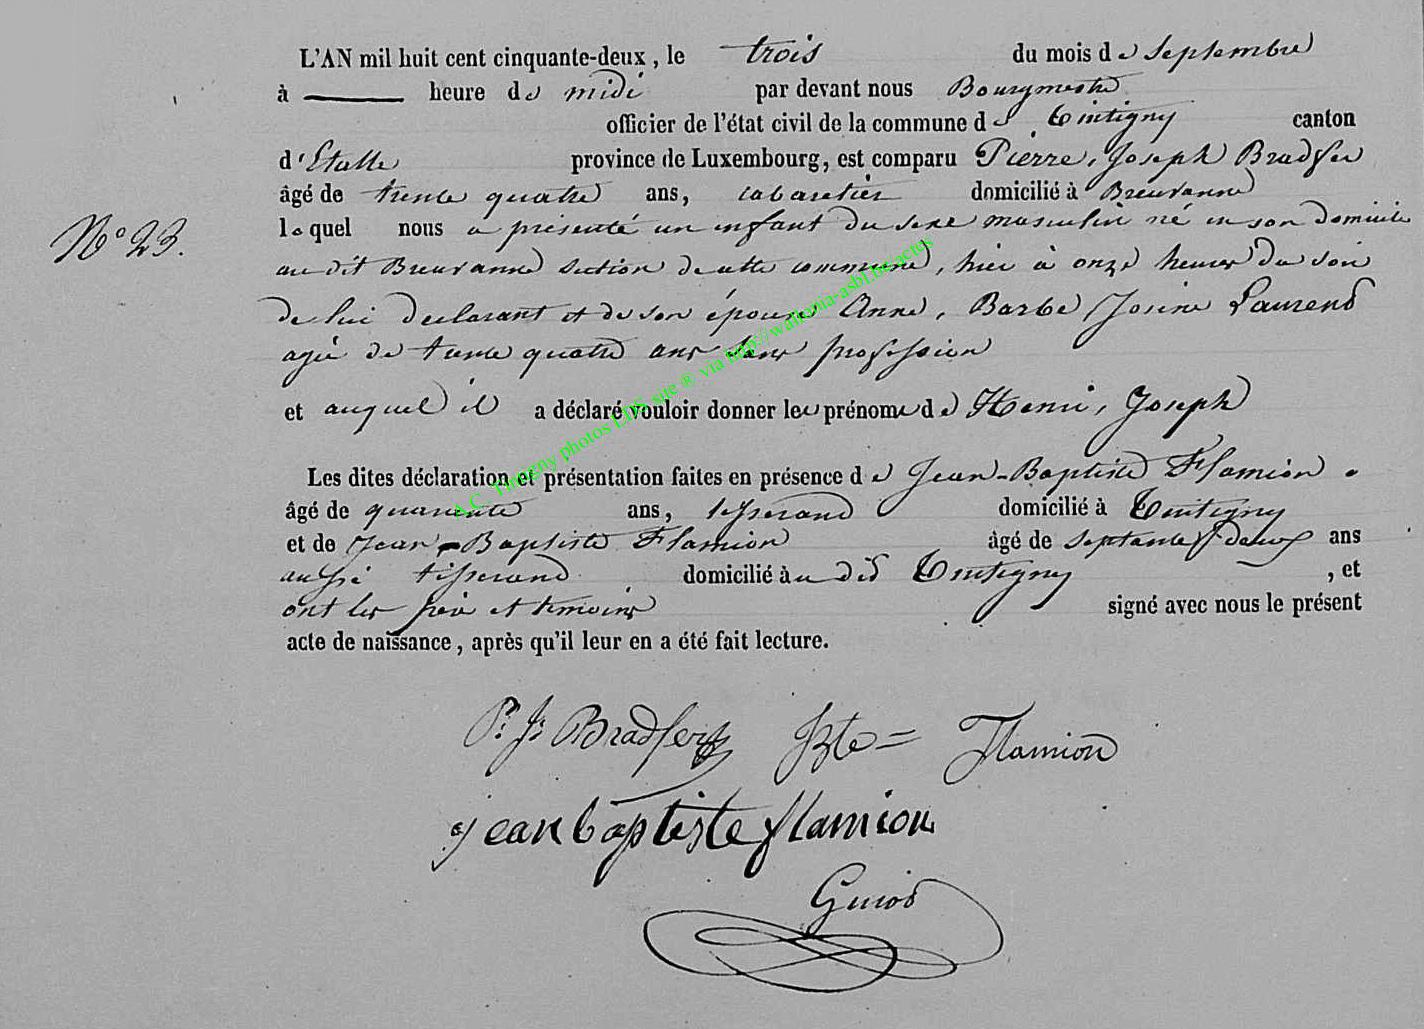 L'AN mil huit cent cinquante-deux, le trois du mois de Septembre
à heure de midi par devant nous Bourgmestre
officier de l'état civil de la commune de Tintigny canton
d'Etalle province de Luxembourg, est comparu Pierre, Joseph Bradfer
âgé de trente quatre ans, cabaretier domicilié à Breuvanne
N° 23.
lequel nous a présenté un enfant du sexe masculin né en son domicile
au dit Breuvanne section de cette commune, hier à onze heures du soir
de lui declarant et de son épouse Anne, Barbe Josine Laurend
agée de trente quatre ans sans profession
et auquel il a déclaré vouloir donner les prénoms de Henri, Joseph
Les dites déclaration et présentation faites en présence de Jean-Baptiste Flamion
âgé de quarante ans, tisserand domicilié à Tintigny
et de Jean-Baptiste Flamion âgé de septante deux ans
aussi tisserand domicilié à u dit Tintigny, et
ont les père et temoins signé avec nous le présent
acte de naissance, après qu'il leur en a été fait lecture.
P. J. Bradfer JBte = Flamion
jean baptiste flamion
Guiot
A.C. Tintigny photos EDS site ® via http://wallonia-asbl.be/actes